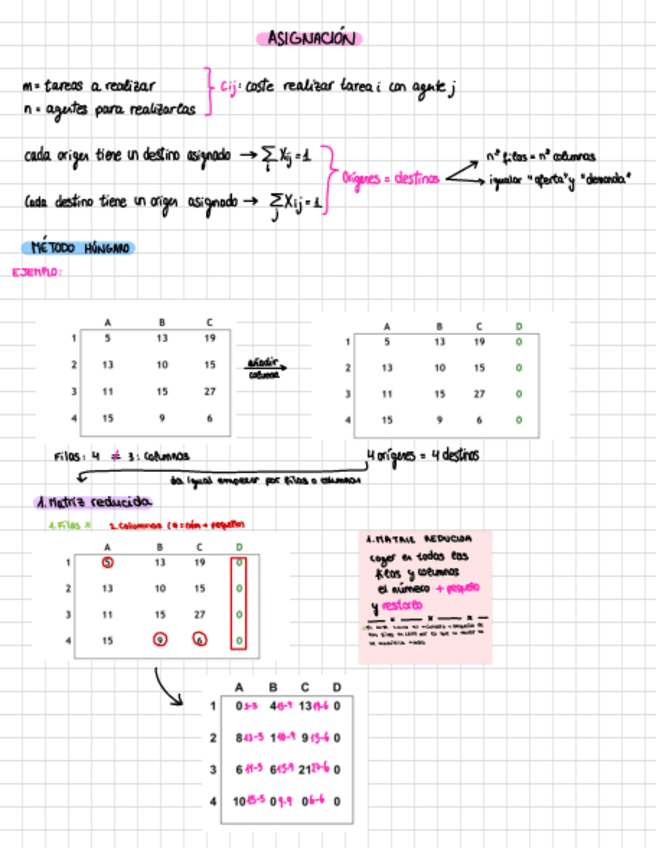 ASIGNACIÓN
m = tareas a realizar
n = agentes para realizarlas
Cij: coste realizar tarea i con agente j
cada origen tiene un destino asignado → ∑i Xij = 1
Cada destino tiene un origen asignado → ∑j Xij = 1
Orígenes = destinos
nº filas = nº columnas
igualar "oferta" y "demanda"
MÉTODO HÚNGARO
EJEMPLO:
A B C
1 5 13 19
2 13 10 15
3 11 15 27
4 15 9 6
añadir
columna
A B C D
1 5 13 19 0
2 13 10 15 0
3 11 15 27 0
4 15 9 6 0
Filas: 4 ≠ 3: columnas
4 orígenes = 4 destinos
da igual empezar por filas o columnas
1. Matriz reducida
1. Filas
2. Columnas (o = núm + pequeño)
A B C D
1 5 13 19 0
2 13 10 15 0
3 11 15 27 0
4 15 9 6 0
1. MATRIZ REDUCIDA
coger en todas las
filas y columnas
el número + pequeño
y restarlo
A B C D
1 0 5-5 4 13-9 13 19-6 0
2 8 13-5 1 10-9 9 15-6 0
3 6 11-5 6 15-9 21 27-6 0
4 10 15-5 0 9-9 0 6-6 0